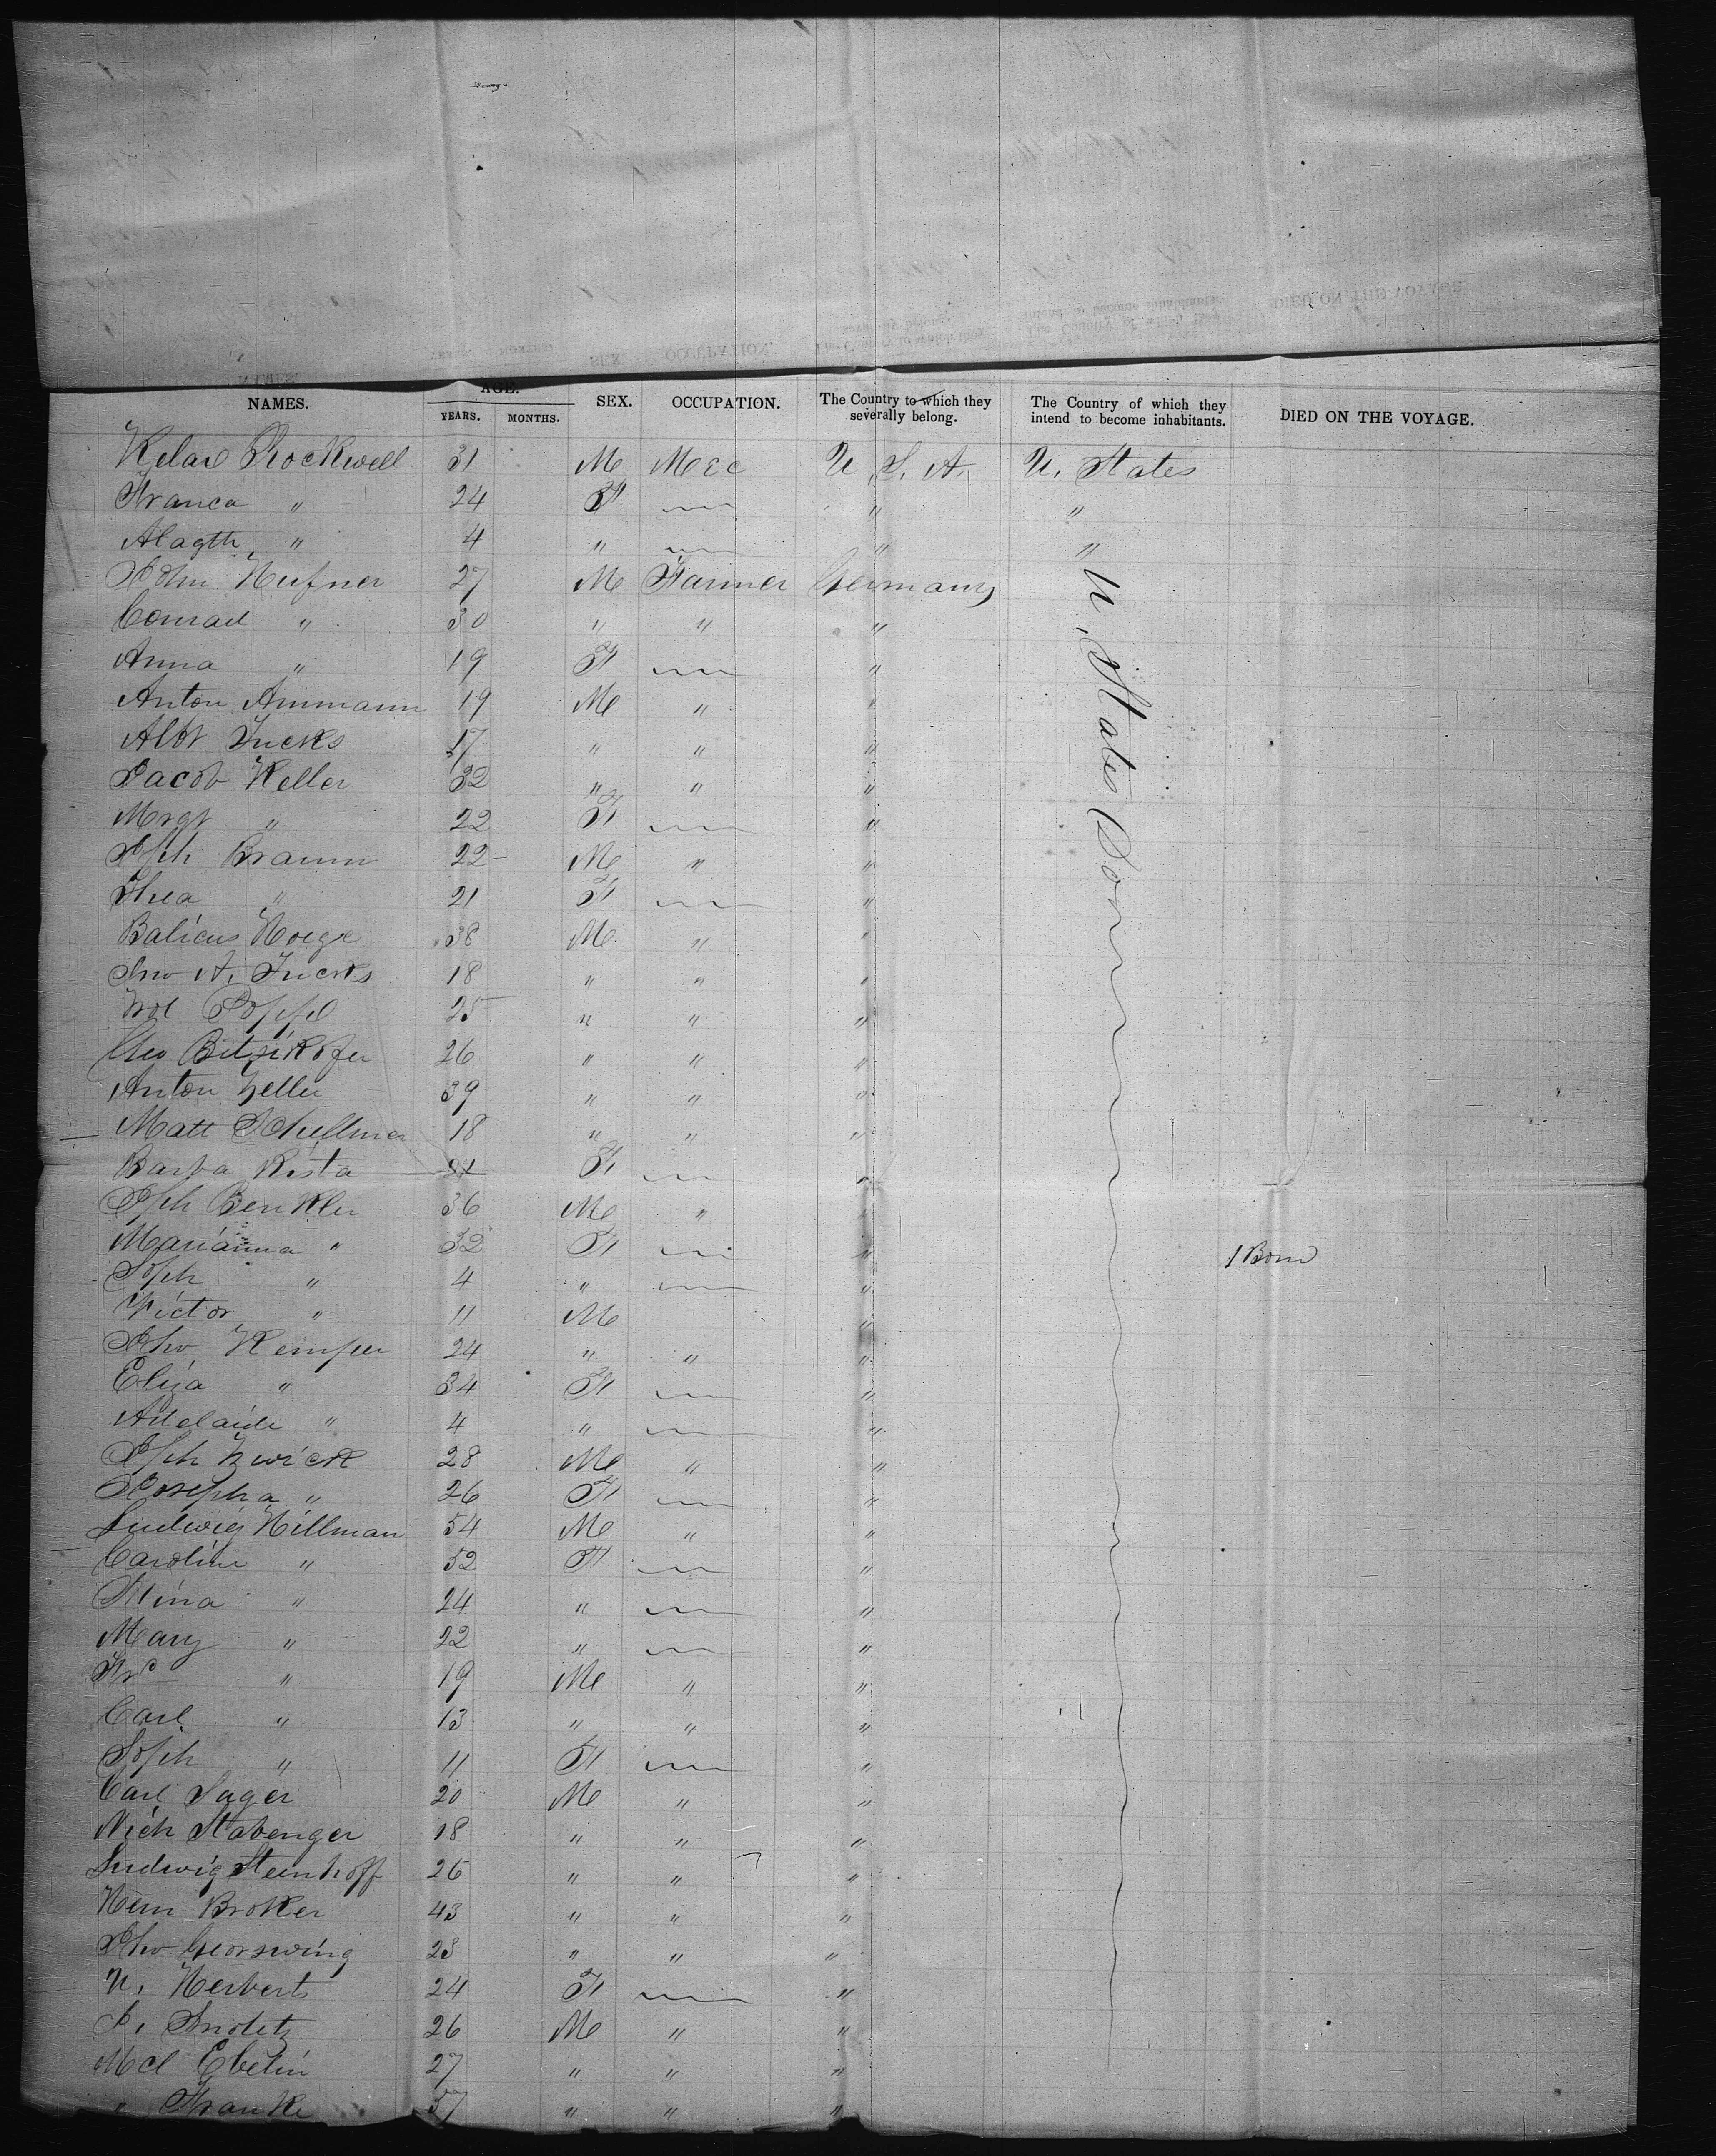 NAMES. AGE. YEARS. MONTHS. SEX. OCCUPATION. The Country to which they severally belong. The Country of which they intend to become inhabitants. DIED ON THE VOYAGE.
Rockwell 31 M Mec U. S. A. U. States
Franca " 24 F " "
" 4 " " "
John Hufner 27 M Farmer Germany U. States
Conrad " 30 " " "
Anna " 19 F "
Anton Ammann 19 M " "
Albt Fucks 17 " " "
Jacob Keller 32 " " "
Mrgt " 22 F "
Jsph Braun 22 M " "
Thea " 21 F "
38 M " "
Jno A. Fucks 18 " " "
25 " " "
Geo Bitzikofer 26 " " "
Anton Zeller 39 " " "
Matt 18 " " "
Barba Rista F "
Jsph Benkler 36 M " "
Marianna " 32 F " 1 Born
Soph " 4 " "
Victor " 11 M "
Jho Kemper 24 " " "
Eliza " 34 F "
Adelaide " 4 " "
Jsph Zwick 28 M " "
Josepha " 26 F "
Ludwig Hillman 54 M " "
Caroline " 52 F "
Mina " 24 " "
Mary " 22 " "
" 19 M " "
Carl " 13 " " "
Soph " 11 F "
Carl Sager 20 M " "
Nich Stabenger 18 " " "
Ludwig Steinhoff 26 " " "
Hem Broker 43 " " "
Jho Georswing 23 " " "
N. Herberts 24 F "
26 M " "
Mcl Ebelin 27 " " "
" Franke 57 " " "